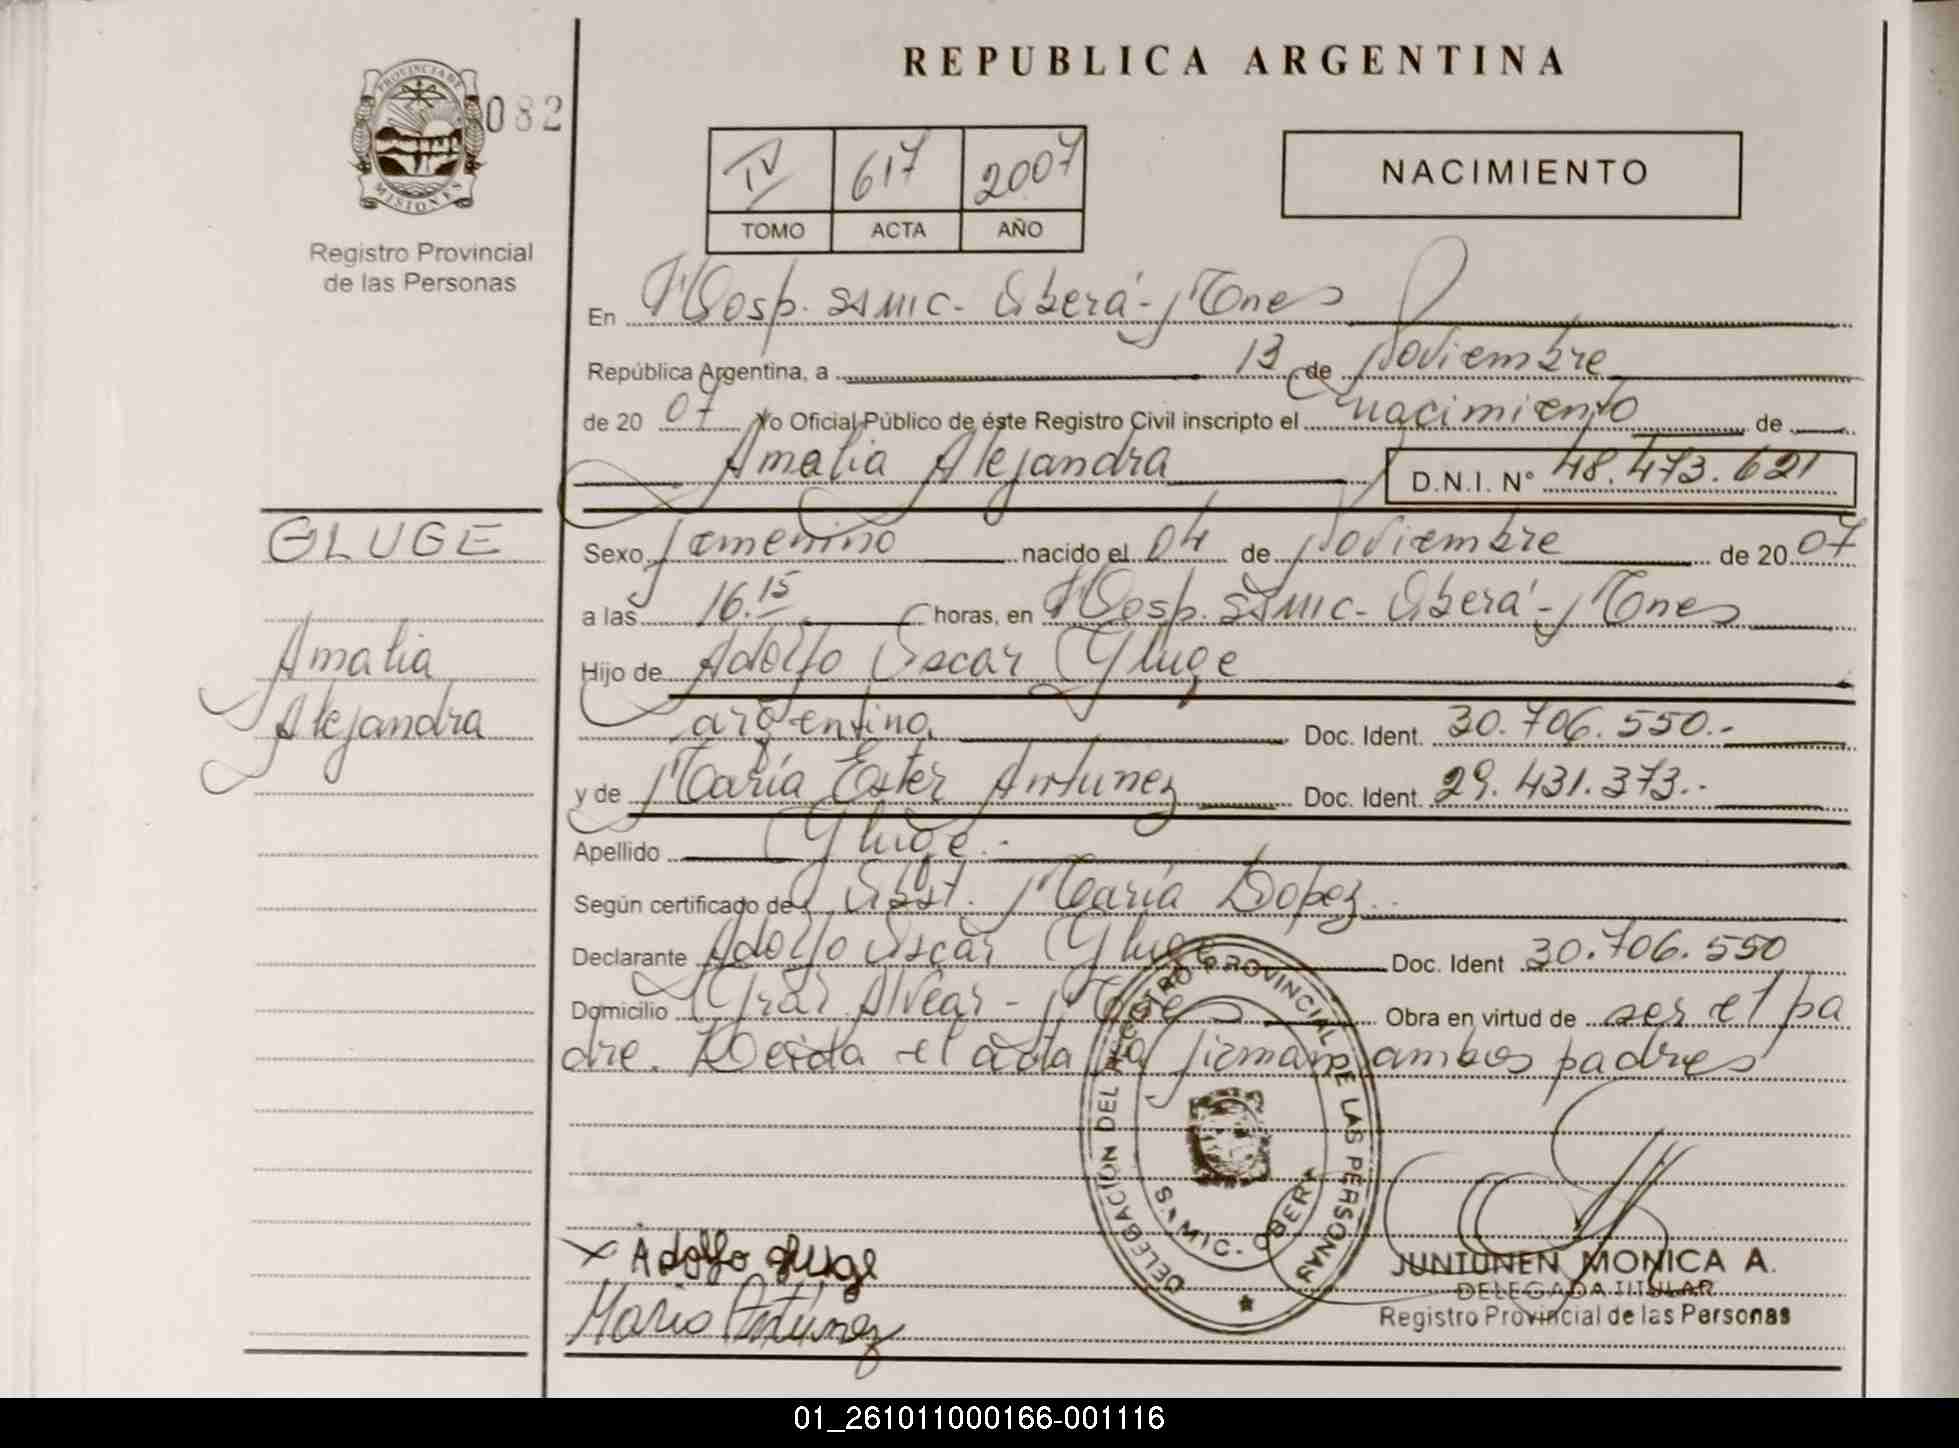 REPUBLICA ARGENTINA
PROVINCIA DE
MISIONES
082
Registro Provincial
de las Personas
IV 617 2007
TOMO ACTA AÑO
NACIMIENTO
En Hosp. SAMIC - Oberá - Mnes
República Argentina, a 13 de Noviembre
de 2007 Yo Oficial Público de éste Registro Civil inscripto el nacimiento de
Amalia Alejandra D.N.I. N° 48.473.621
GLUGE
Amalia
Alejandra
Sexo femenino nacido el 04 de Noviembre de 2007
a las 16.15 horas, en Hosp. SAMIC - Oberá - Mnes
Hijo de Adolfo Oscar Gluge
argentino, Doc. Ident. 30.706.550.-
y de María Ester Antunez Doc. Ident. 29.431.373.-
Apellido Gluge.-
Según certificado de Obst. María Lopez.
Declarante Adolfo Oscar Gluge Doc. Ident 30.706.550
Domicilio Gral Alvear - Mnes Obra en virtud de ser el pa
dre. Leida el acta la firman ambos padres
DELEGACION DEL REGISTRO PROVINCIAL DE LAS PERSONAS
SAMIC. OBERA
x Adolfo gluge
Maria Antúnez
JUNTUNEN MONICA A.
DELEGADA TITULAR
Registro Provincial de las Personas
01_261011000166-001116